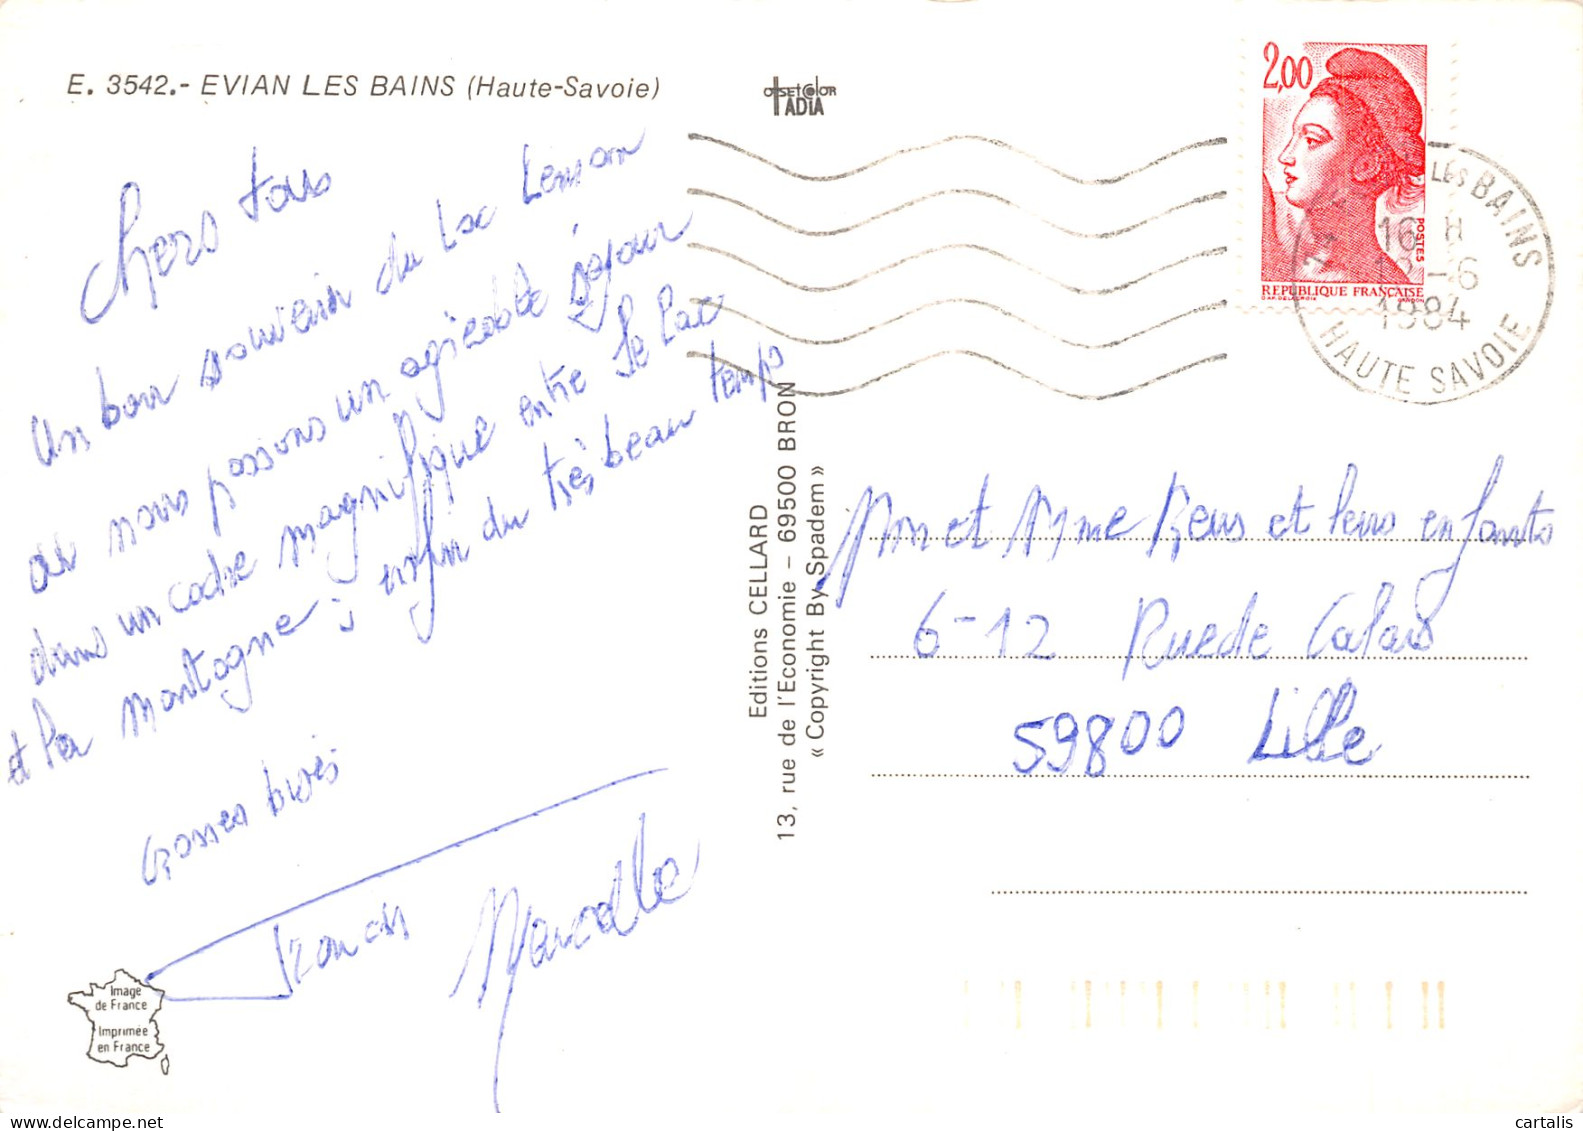 E. 3542.- EVIAN LES BAINS (Haute-Savoie)
OFFSET COLOR
IADIA
Chers tous
Un bon souvenir du Lac Leman
où nous passons un agréable séjour
dans un cadre magnifique entre le Lac
et la Montagne ; enfin du très beau temps
Grosses bises
Marcelle
Image
de France
Imprimée
en France
Editions CELLARD
13, rue de l'Economie - 69500 BRON
« Copyright By Spadem »
2,00
POSTES
REPUBLIQUE FRANÇAISE
D'AP. DELACROIX GANDON
LES BAINS
16 H
-6
1984
HAUTE SAVOIE
Mr et Mme Rens et leurs enfants
6-12 Rue de Calais
59800 Lille
cartalis